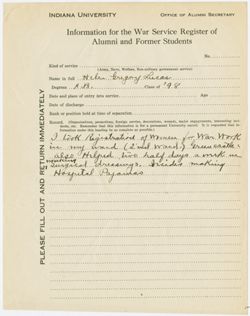 INDIANA UNIVERSITY
OFFICE OF ALUMNI SECRETARY
Information for the War Service Register of
Alumni and Former Students
No.
Kind of service
(Army, Navy, Welfare, Non-military government service)
Name in full Helen Gregory Lucas
Degrees A.B. Class of '98
Date and place of entry into service Age
Date of discharge
Rank or position held at time of separation
I took Registration of Women for War Work
in my ward (2nd Ward) Greencastle -
also Helped two half days a week in
making
surgical dressings. Besides making
Hospital Pajamas
PLEASE FILL OUT AND RETURN IMMEDIATELY